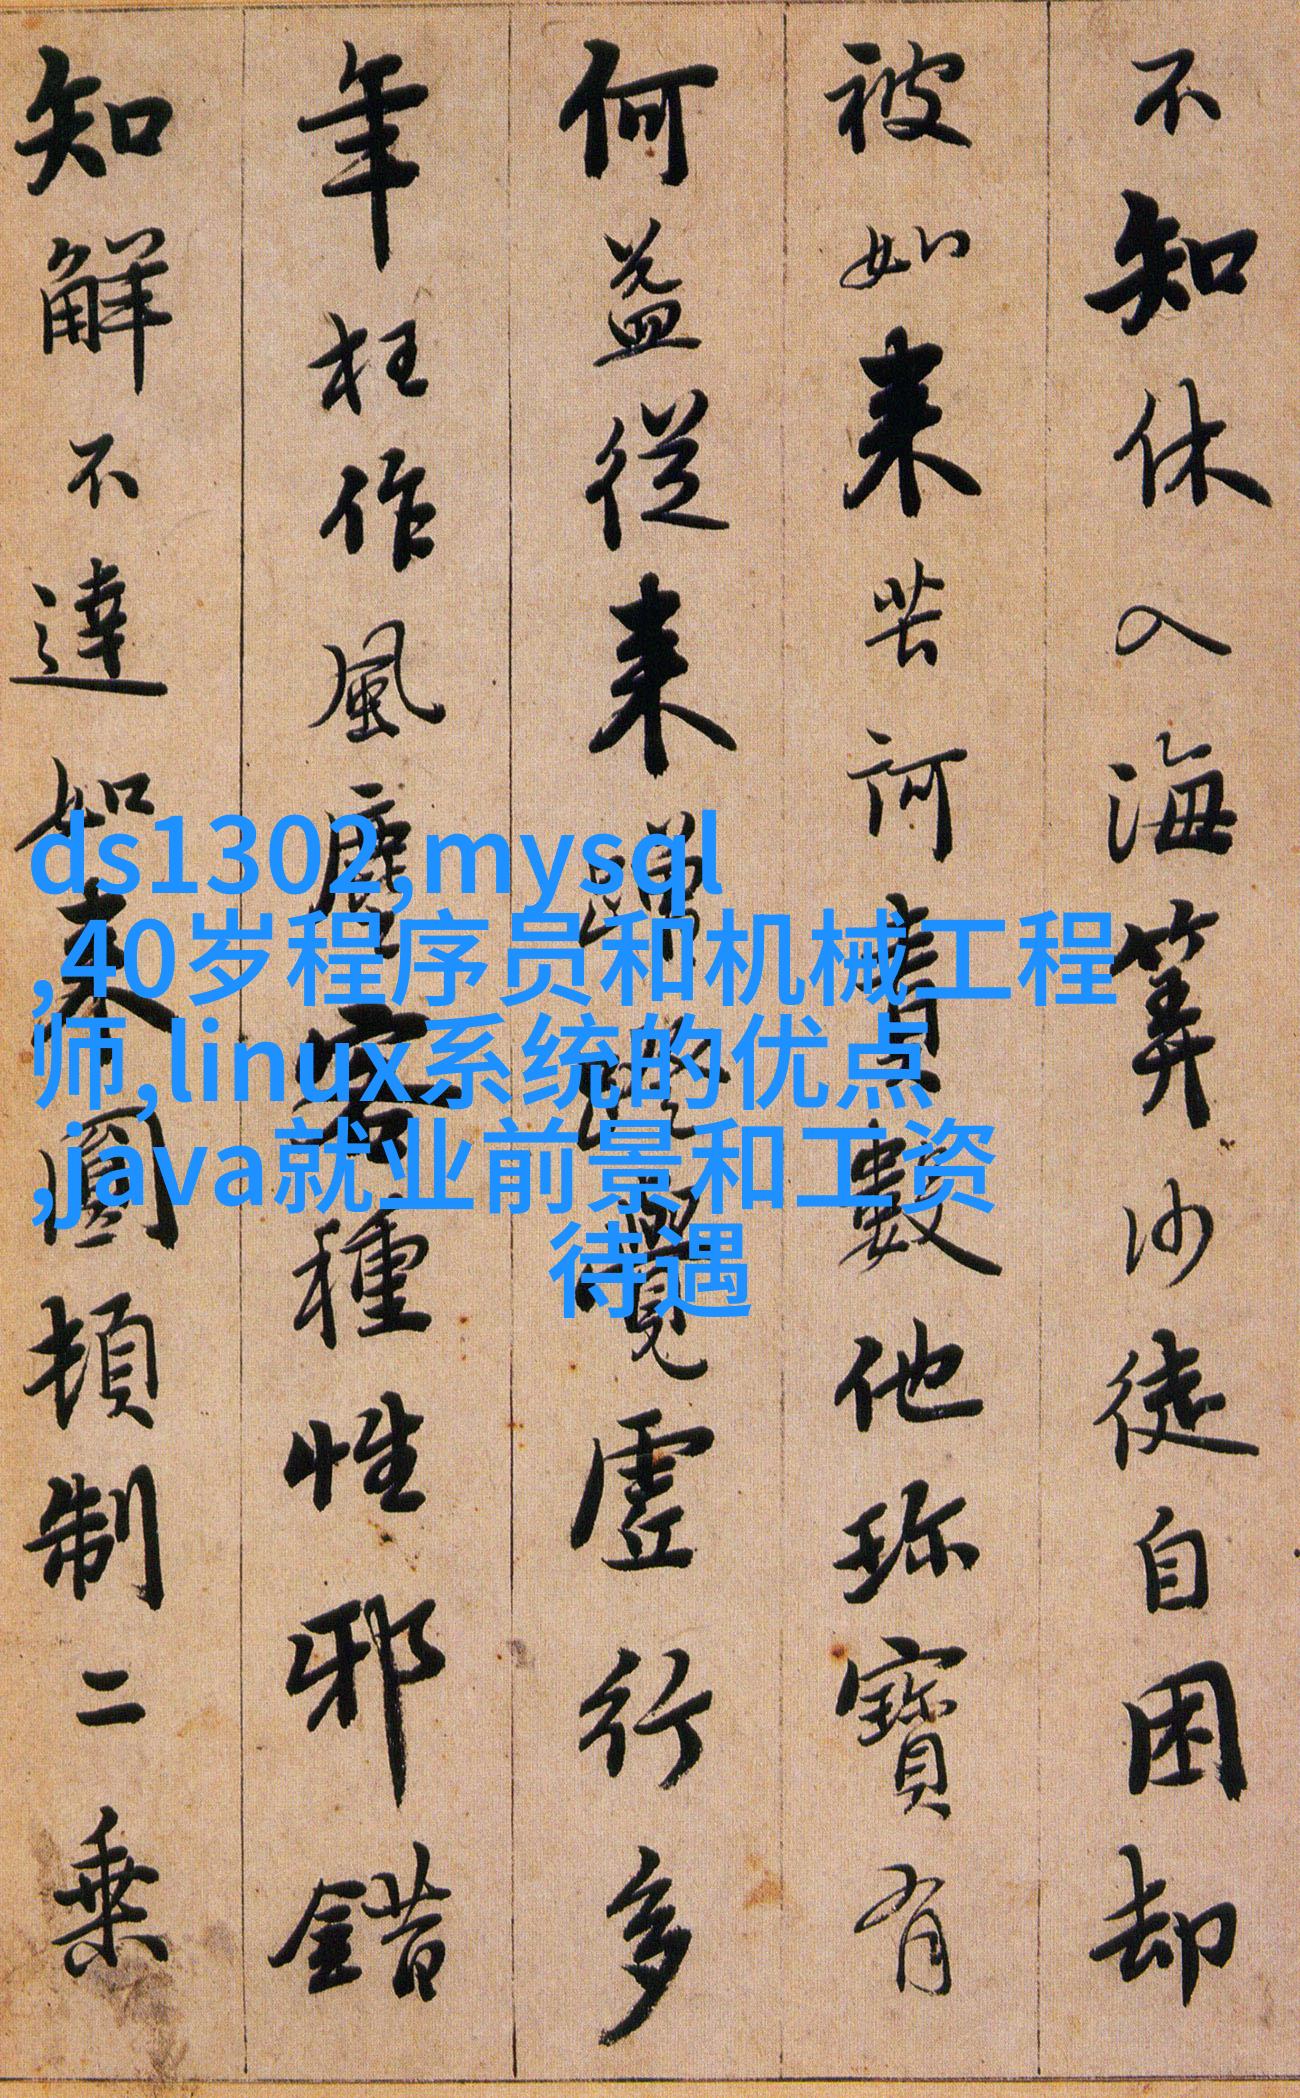 不知休入海筭沙徒自困却
被如来苦訶責數他珎寶有
何益從来蹭蹬覺虗行多
年枉作風塵客種性邪錯
知解不達如来圓頓制二乗
ds1302,mysql
,40岁程序员和机械工程
师,linux系统的优点
,java就业前景和工资
待遇